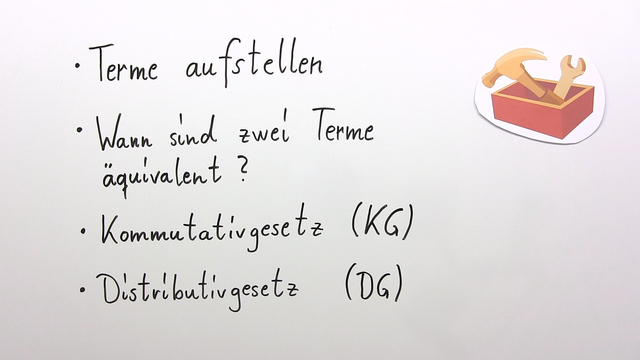 · Terme aufstellen
· Wann sind zwei Terme
äquivalent ?
· Kommutativgesetz (KG)
· Distributivgesetz (DG)